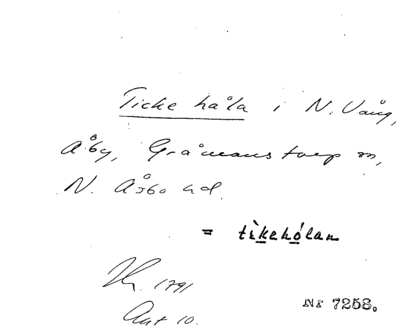 Ticke håla i N. Vång,
Åby, Gråmanstorp sn,
N. Åsbo hd.
= tìkehólan
Hr. 1791
Akt 10.
NE 7258.